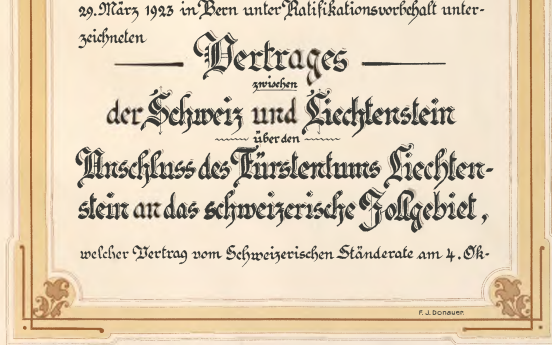 29. März 1923 in Bern unter Ratifikationsvorbehalt unter-
zeichneten
Vertrages
zwischen
der Schweiz und Liechtenstein
über den
Anschluss des Fürstentums Liechten-
stein an das schweizerische Zollgebiet,
welcher Vertrag vom Schweizerischen Ständerate am 4. Ok-
F. J. Donauer.